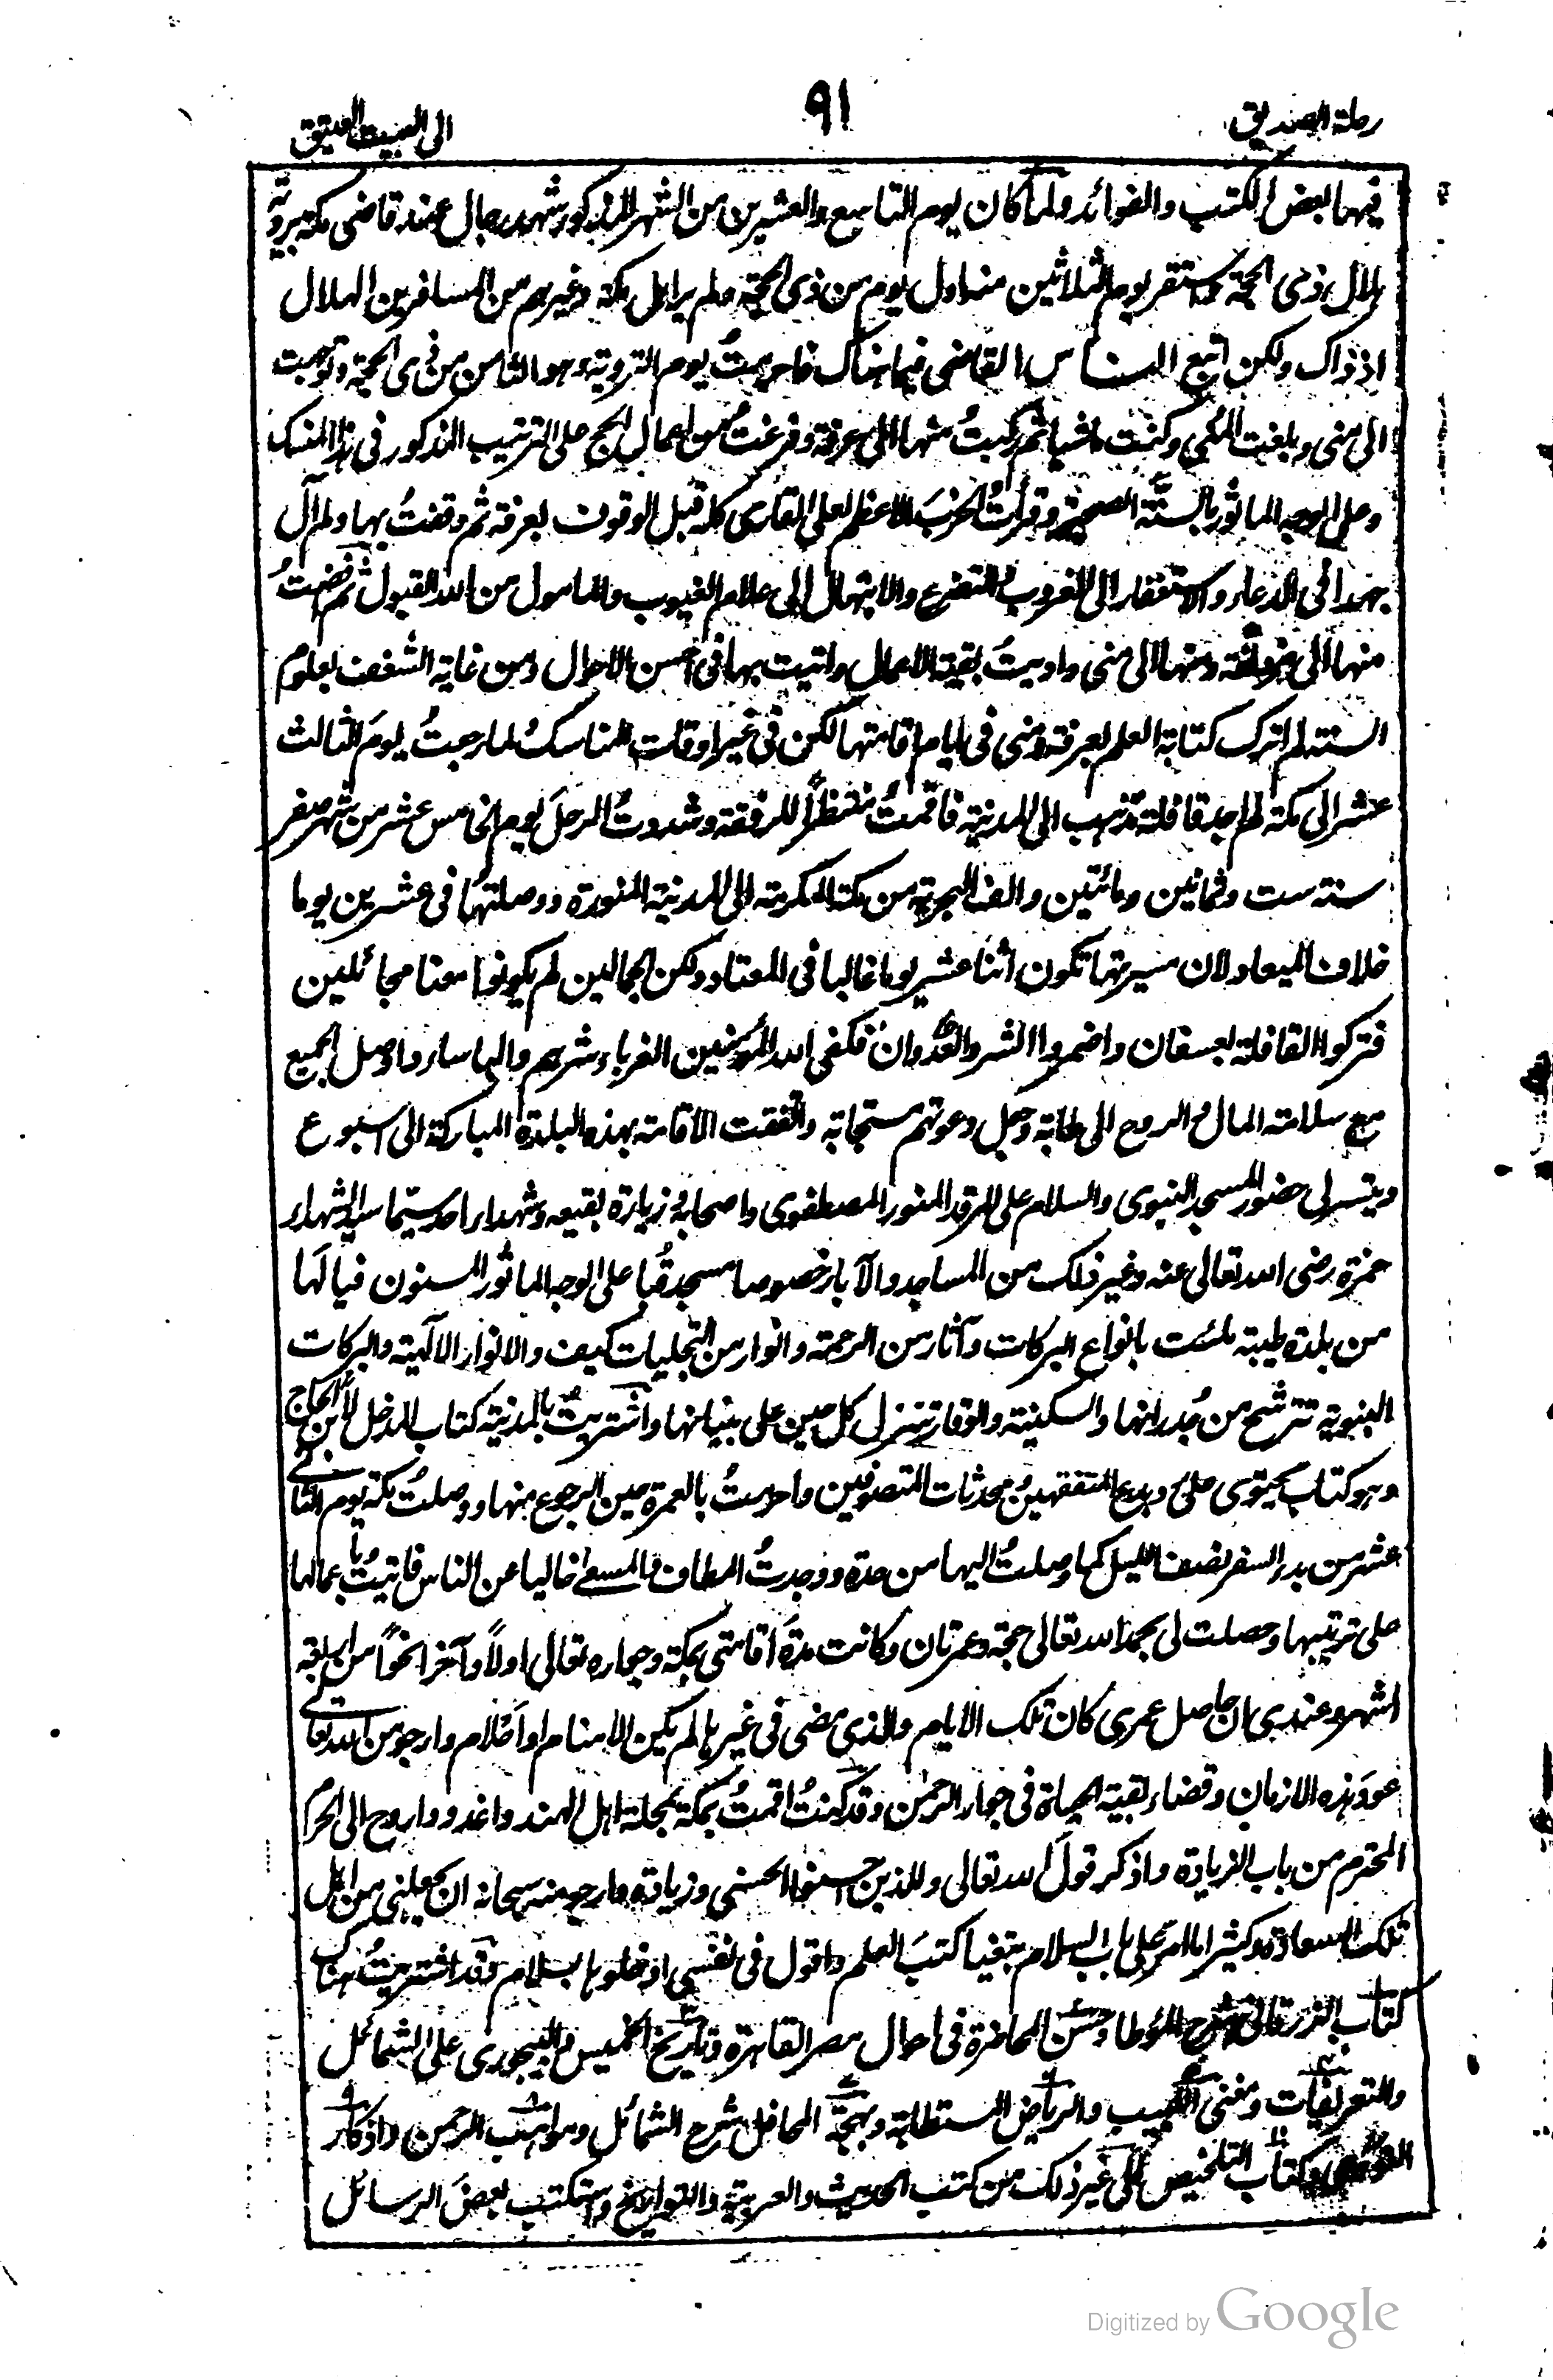 رحلة الصديق
٩١
الى البيت العتيق
فيهما بعض الكتب والفوائد ولما كان يوم التاسع والعشرين من الشهر المذكور شهد رجال عند قاضى مكة برؤية
هلال ذى الحجة واستقر يوم الثلاثين منه اول يوم من ذى الحجة ولم ير اهل مكة وغيرهم من المسافرين الهلال
اذ ذاك ولكن اتبع الناس القاضى فيما هناك فاحرمتُ يوم التروية وهو الثامن من ذى الحجة وتوجهت
الى منى وبلغت وكنت ماشيا ثم ركبتُ منها الى عرفة وفرغتُ من اعمال الحج على الترتيب المذكور فى هذا المنسك
وعلى الوجه الماثور بالسنّة الصحيحة وقرأتُ الحزبَ الاعظم لعلى القارى كله قبل الوقوف بعرفة ثم وقفتُ بها ولم آل
جهدا فى الدعاء والاستغفار الى الغروب بالتضرع والابتهال الى علام الغيوب والمامول من الله القبول ثم افضتُ
منها الى مزدلفة ومنها الى منى واديتُ بقية الاعمال واتيت بها فى احسن الاحوال ومن غاية الشغف بعلوم
السنة لم اترك كتابة العلم بعرفة ومنى فى ايام اقامتها لكن فى غير اوقات المناسك لما رجعتُ يومَ الثالث
عشر الى مكة لم اجد قافلة تذهب الى المدينة فاقمتُ منتظرًا للرفقة وشددتُ الرحلَ يوم الخامس عشر من شهر صفر
سنة ست وثمانين ومائتين والف الهجرية من مكة المكرمة الى المدينة المنورة ووصلتها فى عشرين يوما
خلاف الميعاد لان مسيرتها تكون اثنا عشر يوما غالبا فى المعتاد ولكن الجمالين لم يكونوا معنا مجاملين
فتركوا القافلة بعسفان واضمروا الشر والعدوان فكفى الله المؤمنين الغرباء شرهم والهاساء واوصل الجميع
مع سلامة المال والروح الى طابة وجعل دعوتهم مستجابة واتفقت الاقامة بهذه البلدة المباركة الى اسبوع
وتيسر لى حضور المسجد النبوى والسلام على المرقد المنور المصطفوى واصحابه وزيارة بقيعه وشهداء احد سيّما سيد الشهداء
حمزة رضى الله تعالى عنه وغير ذلك من المساجد والآبار خصوصا مسجد قُبا على الوجه الماثور المسنون فيا لَها
من بلدة طيبة ملئت بانواع البركات وآثار من الرحمة وانوار من التجليات كيف والانوار الالهية والبركات
النبوية تترشح من جُدرانها والسكينة والوقار تتنزل كل حين على بنيانها واشتريتُ بالمدينة كتاب المدخل لابن الحاج
وهو كتاب يحتوى على بدع المتفقهين ومحدثات المتصوفين واحرمتُ بالعمرة حين الرجوع منها ووصلتُ مكة يوم الثانى
عشر من بدء السفر نصف الليل كما وصلتُ اليها من جدة ووجدتُ المطاف والمسعى خاليا عن الناس فاتيتُ باعمالها
على ترتيبها وحصلت لى بحمد الله تعالى حجة وعمرتان وكانت مدة اقامتى بمكة وجواره تعالى اولاً وآخرا نحوًا من اربعة
اشهر وعندى ان حاصل عمرى كان تلك الايام والذى مضى فى غيرها لم يكن الا منام او احلام وارجو من الله تعالى
عودَ هذه الازمان وقضاء بقية الحياة فى جوار الرحمٰن وقد كنتُ اقمتُ بمكة بمحلة اهل الهند واغدو واروح الى الحرم
المحترم من باب الزيادة واذكر قولَ الله تعالى وللذين احسنوا الحسنى وزيادة وارجو منه سبحانه ان يجعلنى من اهل
تلك السعادة وكثيرا ما امر على باب السلام مبتغيا كتبَ العلم واقول فى نفسى ادخلوها بسلام وقد اشتريتُ هناك
كتاب الزرقانى شرح المؤطا وحسن المحاضرة فى احوال مصر القاهرة وتاريخ الخميس والبيجورى على الشمائل
والتعريفات ومغنى اللبيب والرياض المستطابة وبهجة المحافل شرح الشمائل ومواهب الرحمن واذكار
وكتاب التلخيص الى غير ذلك من كتب الحديث والعربية والتواريخ واستكتب بعضَ الرسائل
Digitized by Google